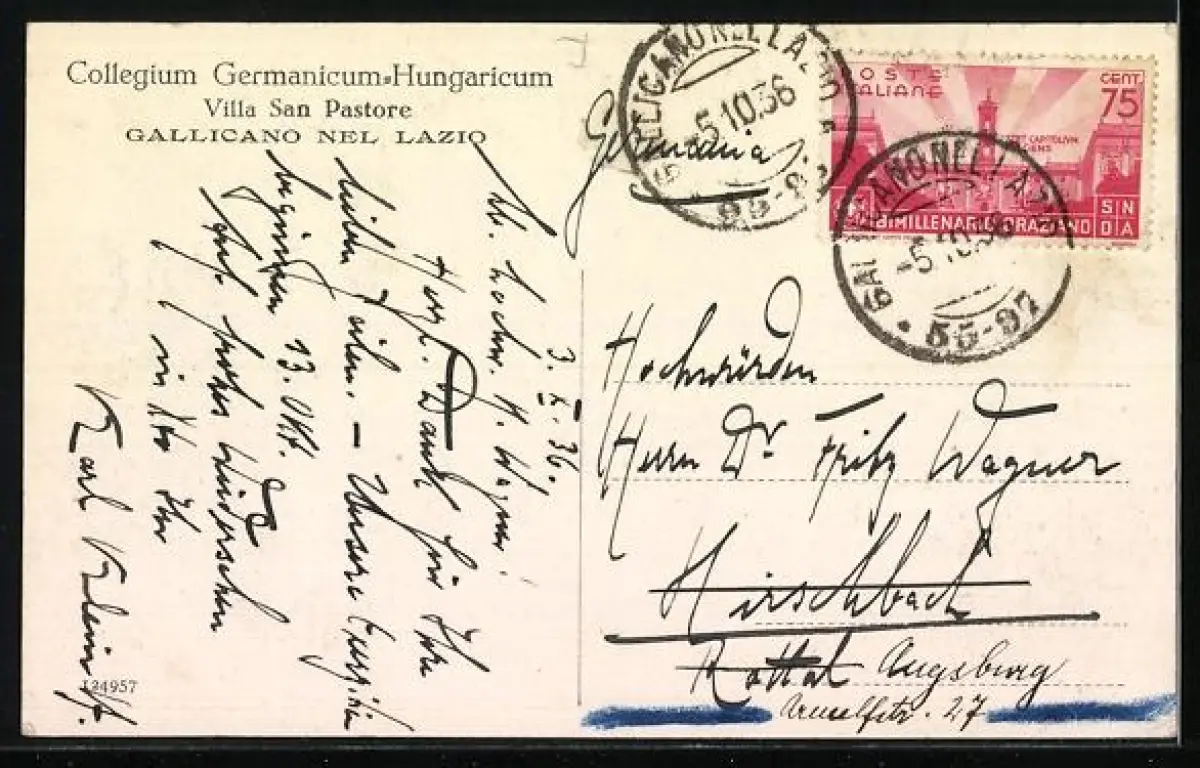 Collegium Germanicum-Hungaricum
Villa San Pastore
GALLICANO NEL LAZIO
3. X. 36.
Wagner!
Herzl. Dank für Ihre
lieben Zeilen. – Unsere Exerzitien
beginnen 13. Okt.
Auf frohes Wiedersehen
Ihr
Karl Klein
124957
Germania
GALLICANO NEL LAZIO
-5.10.36
55-97
POSTE
ITALIANE
CENT
75
BIMILLENARIO ORAZIANO
S N
D A
GALLICANO NEL LAZIO
-5.10.36
55-97
Hochwürden
Herrn Dr Fritz Wagner
Hirschbach
Rottal Augsburg
27